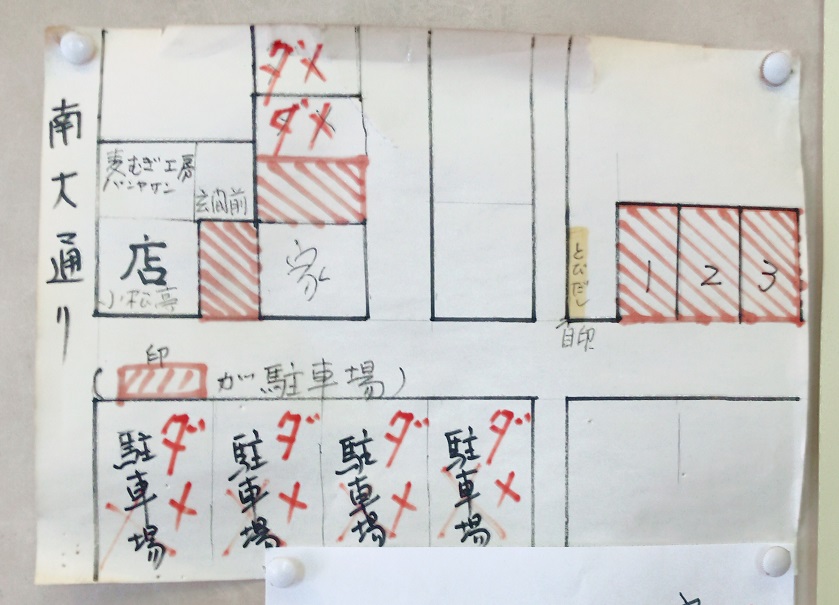 南大通り
ダメ
ダメ
麦むぎ工房
パンヤサン
玄関前
店
小松亭
家
とびだし
目印
1
2
3
印
(
が駐車場)
駐車場
ダメ
駐車場
ダメ
駐車場
ダメ
駐車場
ダメ